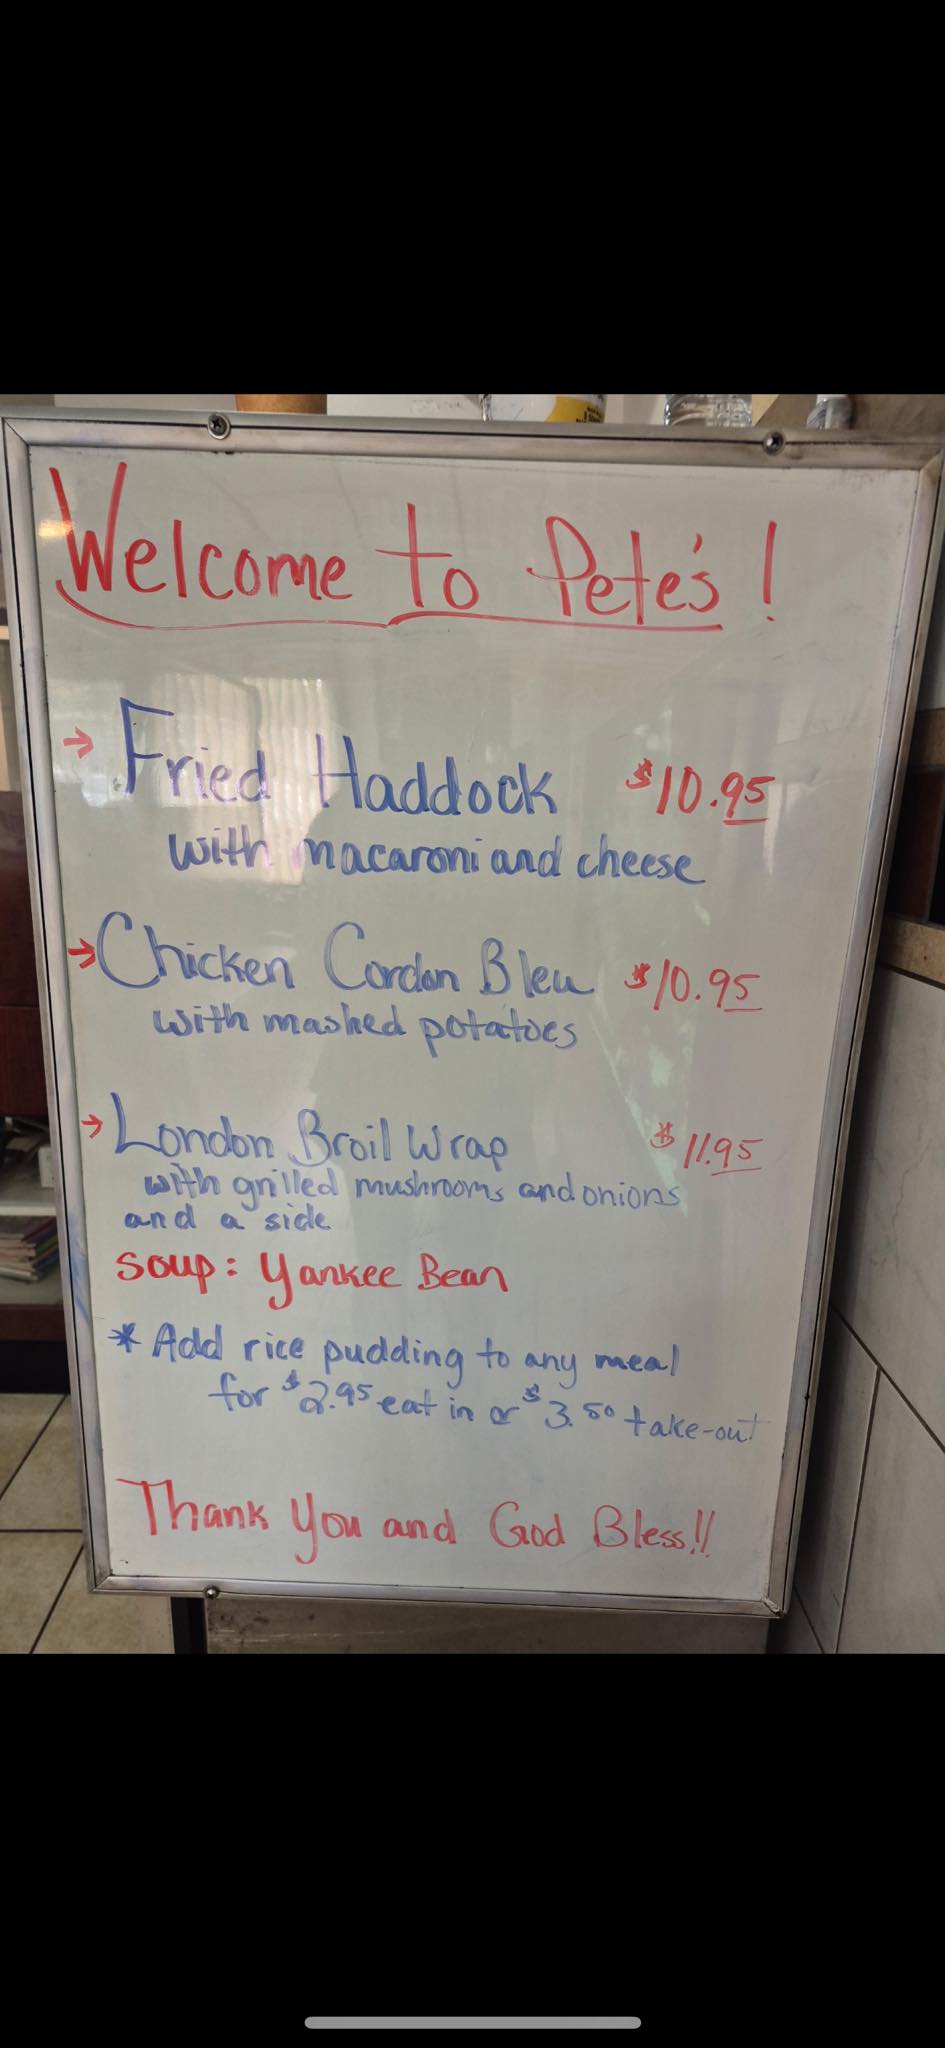 Welcome to Pete's!
→ Fried Haddock $10.95
with macaroni and cheese
→ Chicken Cordon Bleu $10.95
with mashed potatoes
→ London Broil Wrap $11.95
with grilled mushrooms and onions
and a side
Soup: Yankee Bean
* Add rice pudding to any meal
for $2.95 eat in or $3.50 take-out
Thank You and God Bless!!